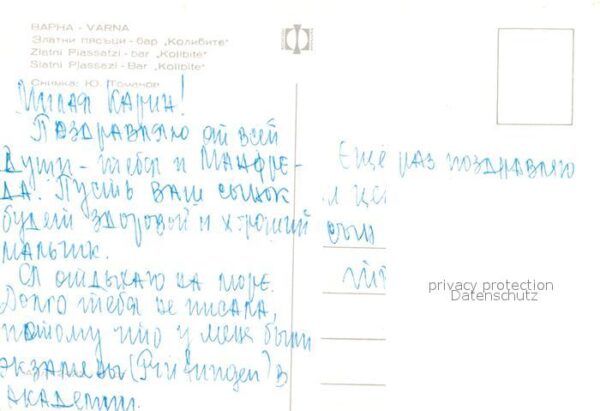 ВАРНА - VARNA
Златни пясъци - бар „Колибите"
Zlatni Piassatzi - bar „Kolibite"
Slatni Pjassazi - Bar „Kolibite"
Снимка: Ю. Томанов
Милая Карин!
Поздравляю от всей
души - тебя и Манфре-
да. Пусть ваш сынок
будет здоровой и хороший
мальчик.
Я отдыхаю на море.
Долго тебя не писала,
потому что у меня были
экзамены (Prüfungen) в
академии.
Ещё раз поздравляю
и це
сын
privacy protection
Datenschutz